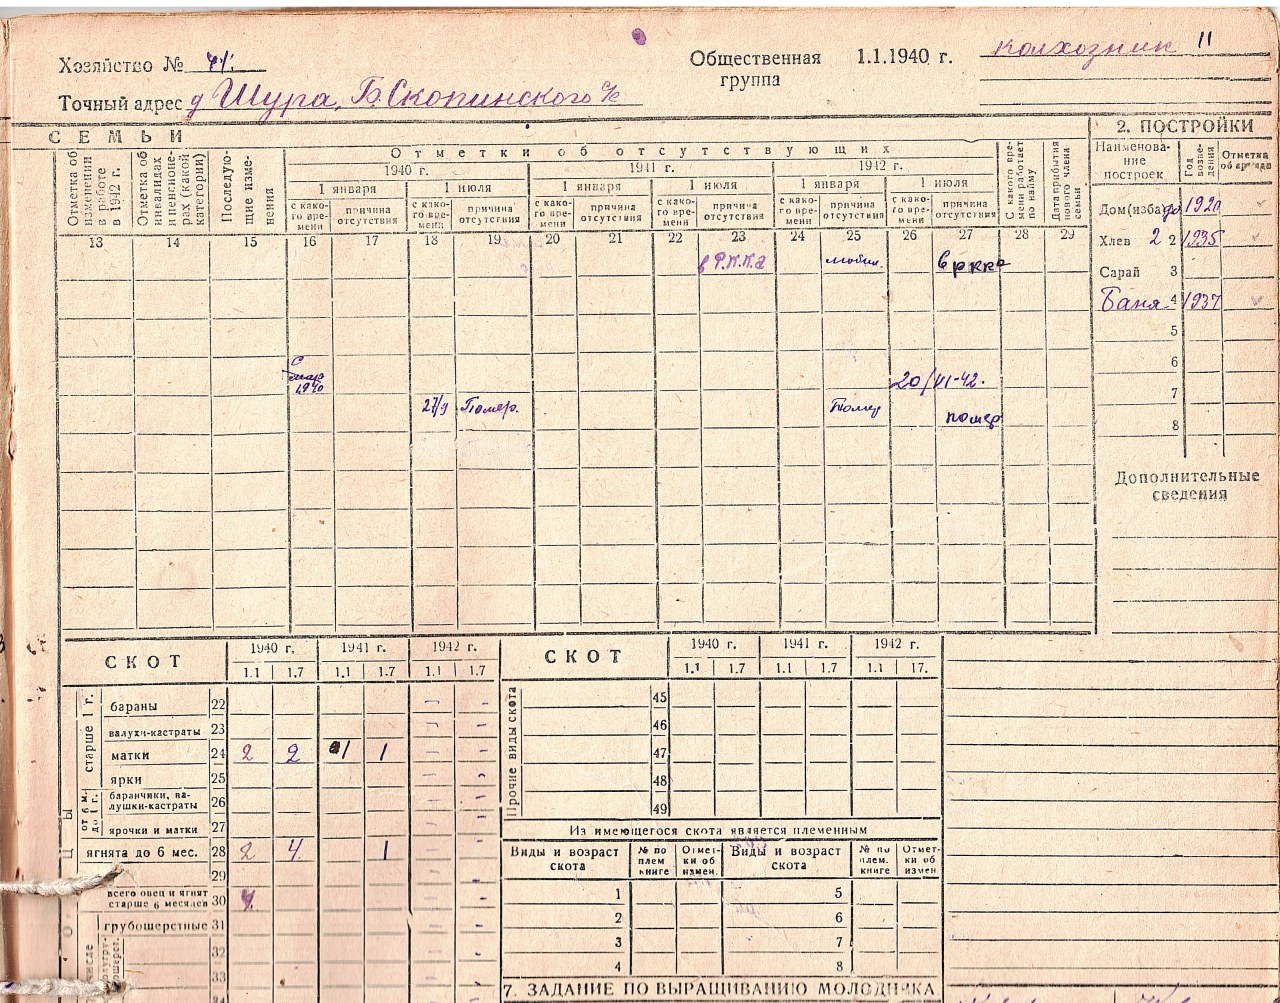 Хозяйство № 71.
Общественная группа 1.1.1940 г. колхозник 11
Точный адрес д Шура, Б.Скопинского с/с
СЕМЬИ
2. ПОСТРОЙКИ
Отметки об отсутствующих
1940 г. 1941 г. 1942 г.
1 января 1 июля 1 января 1 июля 1 января 1 июля
Отметка об изменении в работе в 1942 г.
Отметка об инвалидах и пенсионерах (какой категории)
Последующие изменения
с какого времени причина отсутствия с какого времени причина отсутствия с какого времени причина отсутствия с какого времени причина отсутствия с какого времени причина отсутствия с какого времени причина отсутствия
С какого времени работает по найму
Дата прибытия нового члена семьи
13 14 15 16 17 18 19 20 21 22 23 24 25 26 27 28 29
в Р.К.К.А мобил. в ркка
с
1940
20/VI-42.
27/9 Помер. Помер помер
Наименование построек Год возведения Отметка
Дом (изба) 1920
Хлев 2 2 1935
Сарай 3
Баня 4 1937
5
6
7
8
Дополнительные сведения
СКОТ 1940 г. 1941 г. 1942 г.
1.1 1.7 1.1 1.7 1.1 1.7
старше 1 г.
бараны 22
валухи-кастраты 23
матки 24 2 2 1 1
ярки 25
от 6 м. до 1 г.
баранчики, валушки-кастраты 26
ярочки и матки 27
ягнята до 6 мес. 28 2 4 1
29
всего овец и ягнят старше 6 месяцев 30
грубошерстные 31
32
33
34
СКОТ 1940 г. 1941 г. 1942 г.
1.1 1.7 1.1 1.7 1.1 17.
Прочие виды скота
45
46
47
48
49
Из имеющегося скота является племенным
Виды и возраст скота № по плем книге Отметки об измен. Виды и возраст скота № по плем. книге Отметки об измен
1 5
2 6
3 7
4 8
7. ЗАДАНИЕ ПО ВЫРАЩИВАНИЮ МОЛОДНЯКА